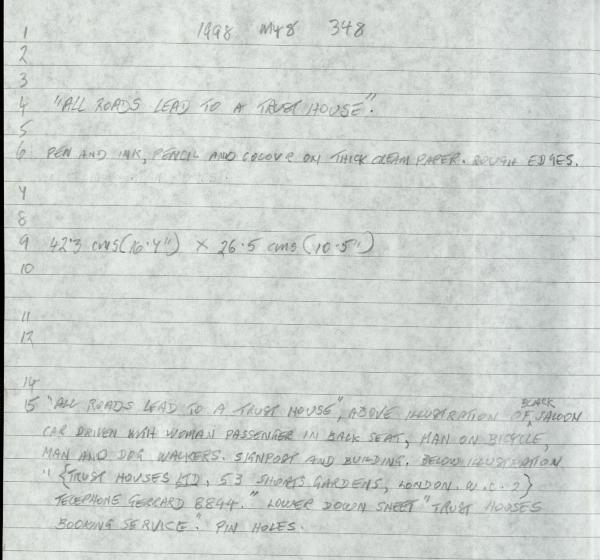 1 1998 MY8 348
2
3
4 "ALL ROADS LEAD TO A TRUST HOUSE".
5
6 PEN AND INK, PENCIL AND COLOUR ON THICK CREAM PAPER. ROUGH EDGES.
7
8
9 42.3 cms (16.4") X 26.5 cms (10.5")
10
11
12
14
15 "ALL ROADS LEAD TO A TRUST HOUSE", ABOVE ILLUSTRATION OF BLACK SALOON
CAR DRIVEN WITH WOMAN PASSENGER IN BACK SEAT, MAN ON BICYCLE,
MAN AND DOG WALKERS. SIGNPOST AND BUILDING. BELOW ILLUSTRATION
" {TRUST HOUSES LTD, 53 SHORTS GARDENS, LONDON. W.C.2}
TELEPHONE GERRARD 8844." LOWER DOWN SHEET "TRUST HOUSES
BOOKING SERVICE." PIN HOLES.